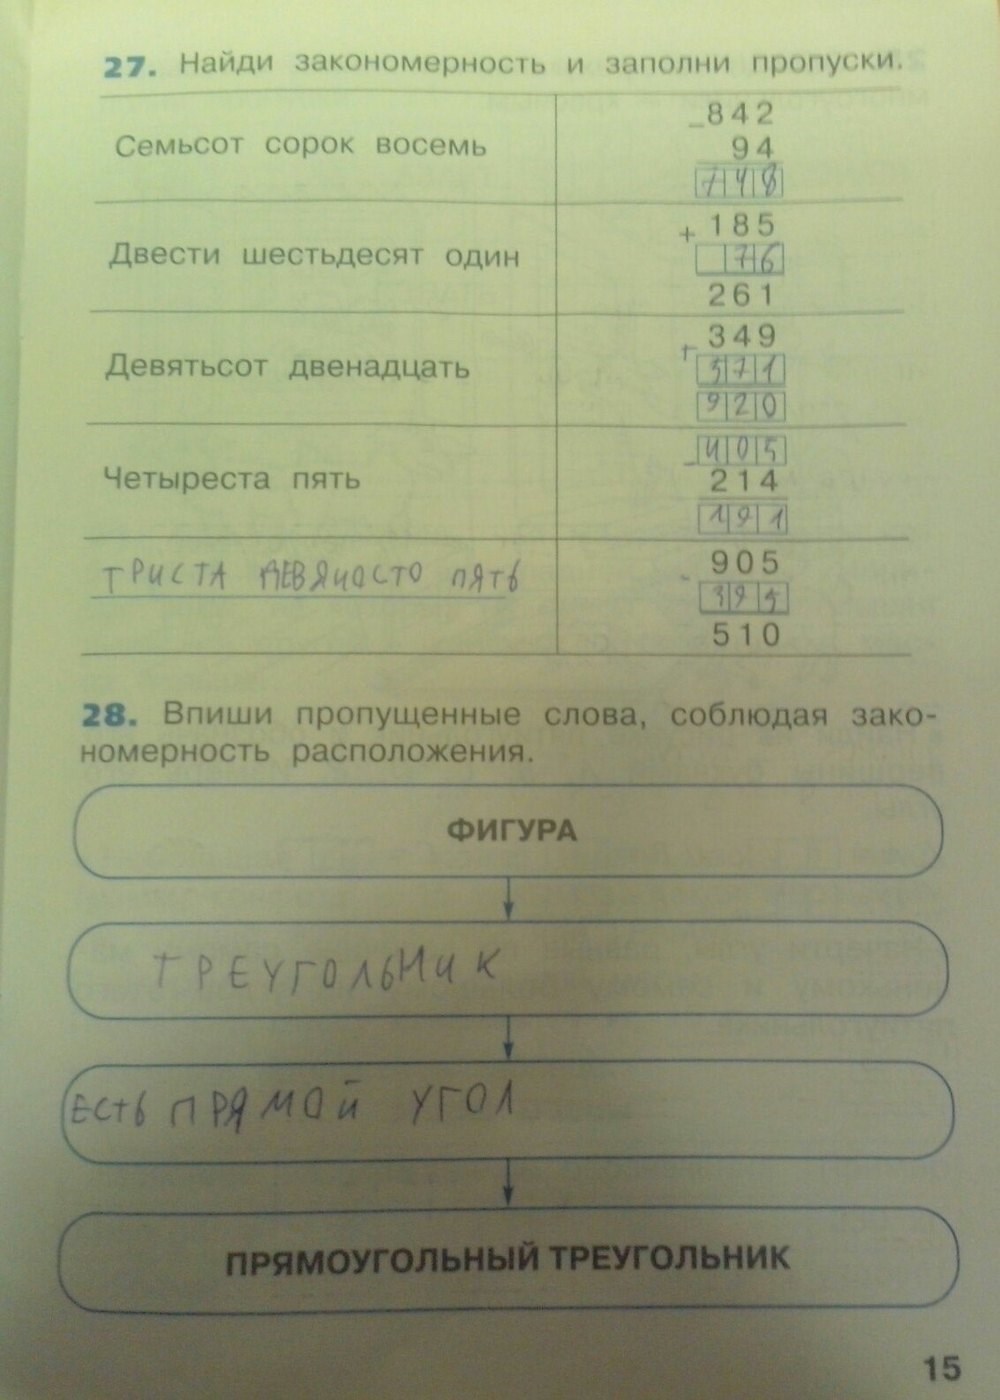 27. Найди закономерность и заполни пропуски.
Семьсот сорок восемь
– 842
94
748
Двести шестьдесят один
+ 185
76
261
Девятьсот двенадцать
+ 349
571
920
Четыреста пять
– 405
214
191
ТРИСТА ДЕВЯНОСТО ПЯТЬ
- 905
395
510
28. Впиши пропущенные слова, соблюдая зако-
номерность расположения.
ФИГУРА
ТРЕУГОЛЬНИК
ЕСТЬ ПРЯМОЙ УГОЛ
ПРЯМОУГОЛЬНЫЙ ТРЕУГОЛЬНИК
15